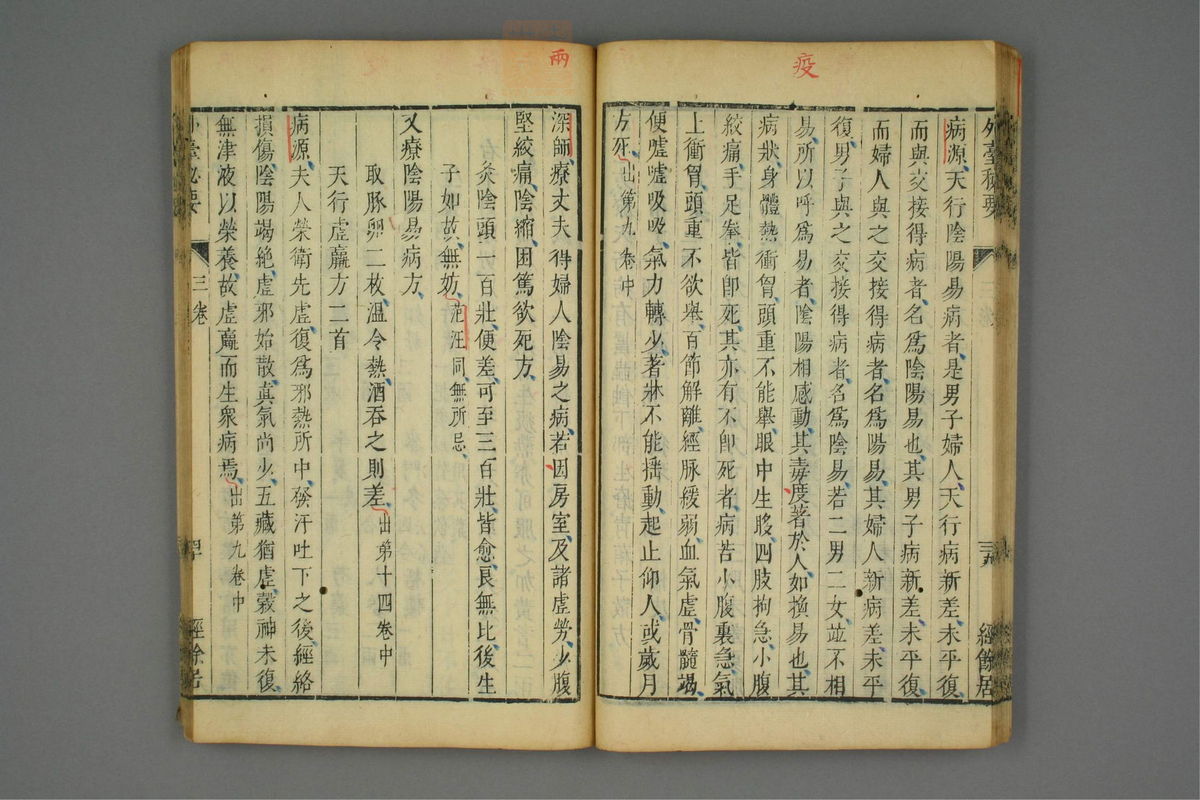 疫
外臺秘要
三卷
經餘居
病源天行陰陽易病者是男子婦人天行病新差未平復
而與交接得病者名爲陰陽易也其男子病新差未平復
而婦人與之交接得病者名爲陽易其婦人新病差未平
復男子與之交接得病者名爲陰易若二男二女並不相
易所以呼爲易者陰陽相感動其毒度著於人如換易也其
病狀身體熱衝胷頭重不能舉眼中生眵四肢拘急小腹
絞痛手足拳皆卽死其亦有不卽死者病苦小腹裏急氣
上衝胷頭重不欲舉百節解離經脉緩弱血氣虛骨髓竭
便噓噓吸吸氣力轉少著牀不能揺動起止仰人或歲月
方死出第九卷中
兩
深師療丈夫得婦人陰易之病若因房室及諸虛勞少腹
堅絞痛陰縮困篤欲死方
灸陰頭一百壯便差可至三百壯皆愈良無比後生
子如故無妨㳸汪同無所忌
又療陰陽易病方
取豚卵二枚溫令熱酒吞之則差出第十四卷中
天行虛羸方二首
病源夫人榮衛先虛復爲邪熱所中發汗吐下之後經絡
損傷陰陽竭絶虛邪始散眞氣尚少五藏猶虛穀神未復
無津液以榮養故虛羸而生衆病焉出第九卷中
外臺秘要
三卷
經餘居